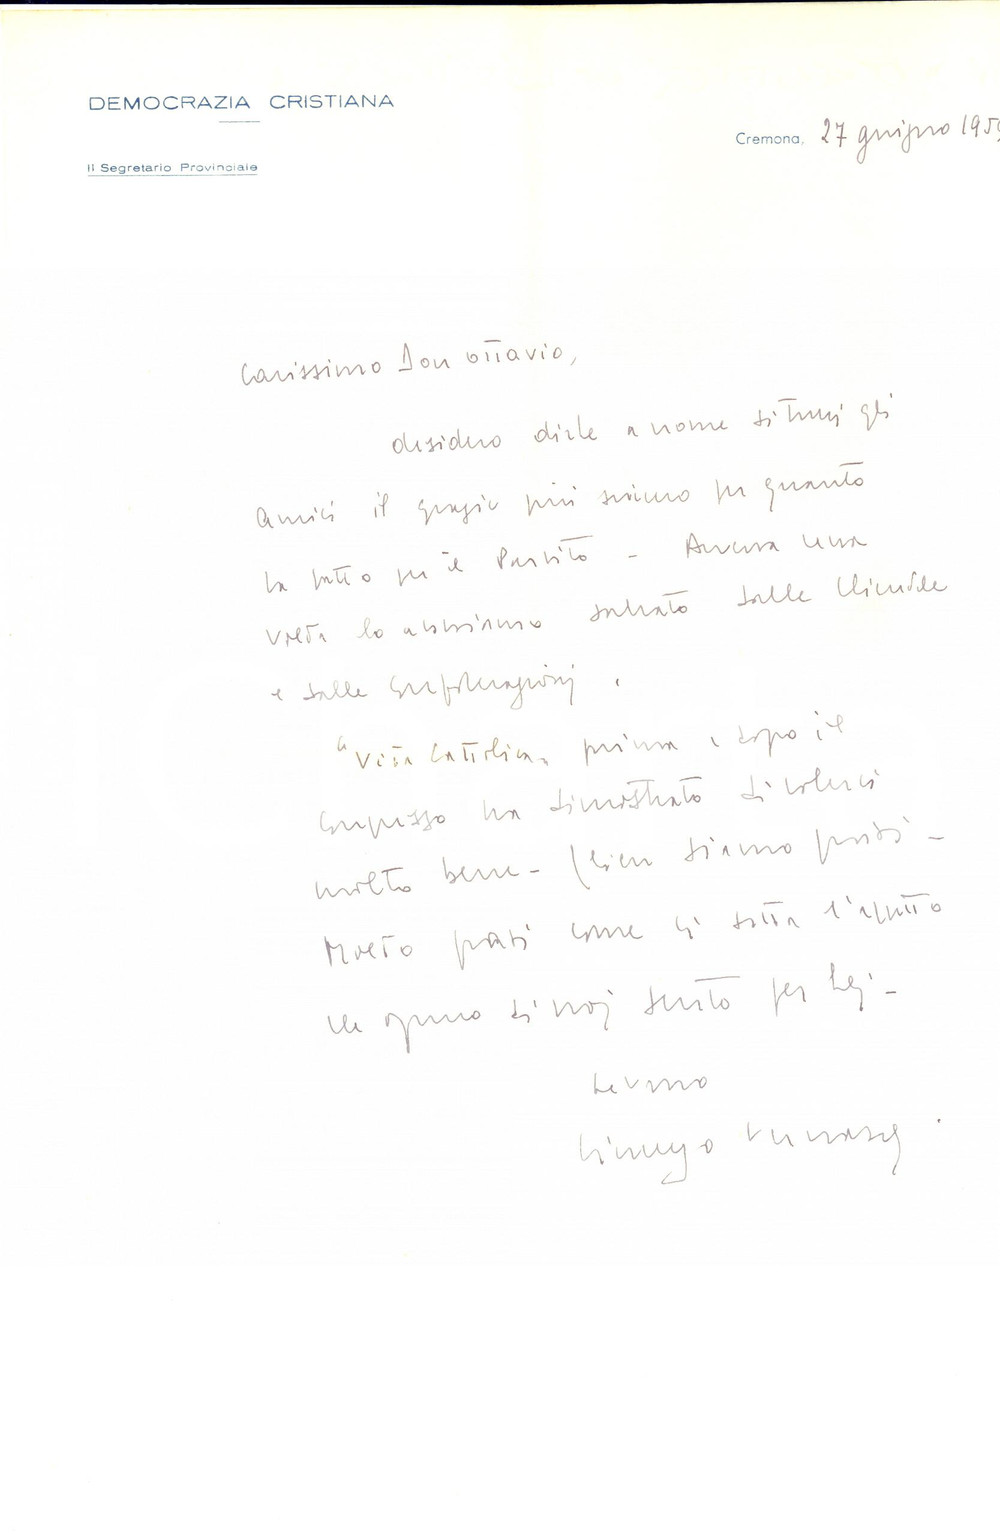 DEMOCRAZIA CRISTIANA
Il Segretario Provinciale
Cremona, 27 giugno 195
Carissimo Don Ottavio,
desidero dirle a nome di tutti gli
Amici il grazie più sincero per quanto
ha fatto per il Partito - Ancora una
volta lo abbiamo salvato dalle
e dalle
"Vita Cattolica" prima e dopo il
Congresso ha dimostrato di volerci
molto bene - siamo grati -
Molto grati come ci detta l'affetto
che ognuno di noi sente per Lei -